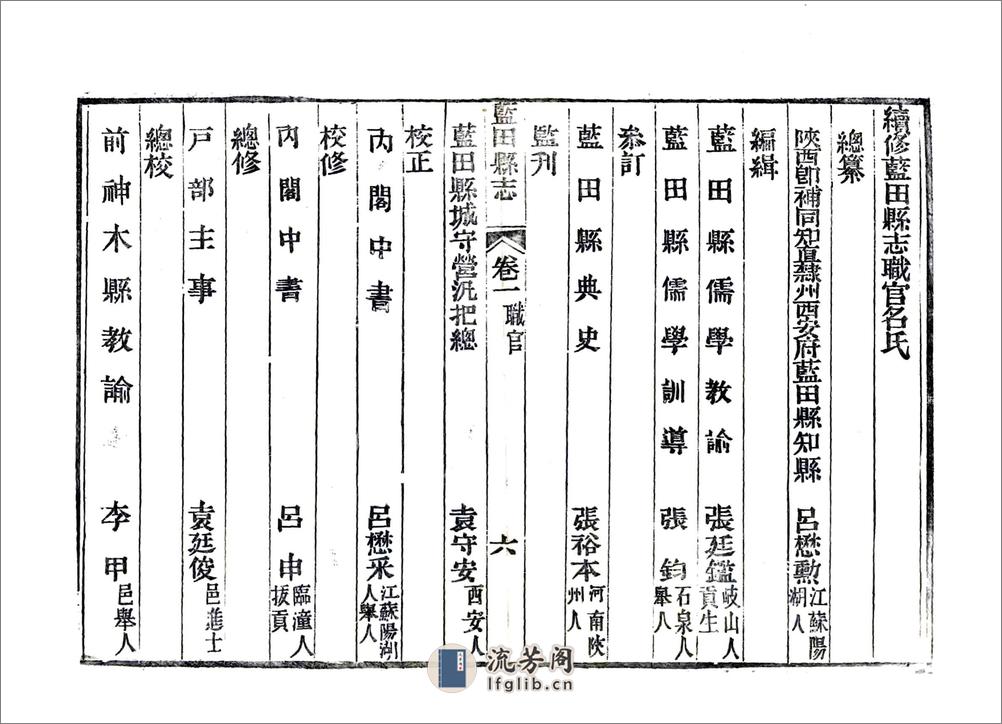 續修藍田縣志職官名氏
總纂
陝西卽補同知直隸州西安府藍田縣知縣 呂懋勳 江蘇陽湖人
編緝
藍田縣儒學教諭 張廷鑑 岐山人貢生
藍田縣儒學訓導 張鈞 石泉人舉人
叅訂
藍田縣典史 張裕本 河南陝州人
監刋
藍田縣志 卷一 職官 六
藍田縣城守營汛把總 袁守安 西安人
校正
內閣中書 呂懋采 江蘇陽湖人舉人
校修
內閣中書 呂申 臨潼人拔貢
總修
戶部主事 袁廷俊 邑進士
總校
前神木縣教諭 李甲 邑舉人
流芳阁
lfglib.cn